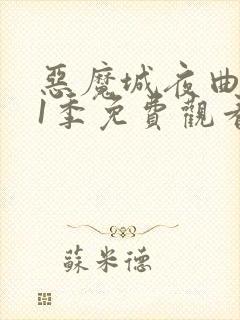 惡魔城夜曲
1季免費觀看
蘇米德